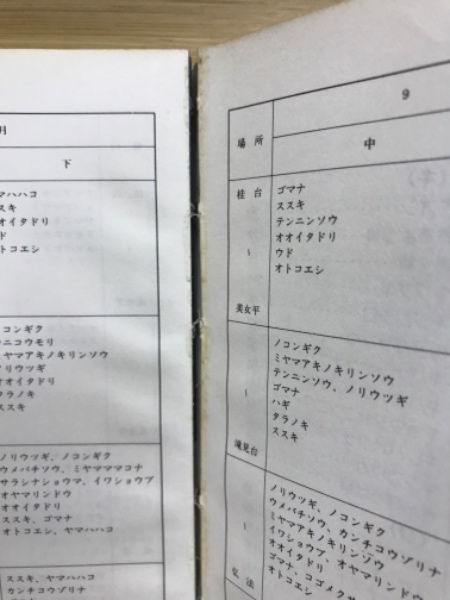 月
下
マハハコ
ススキ
オオイタドリ
ウド
オトコエシ
ノコンギク
カニコウモリ
ミヤマアキノキリンソウ
ノリウツギ
オオイタドリ
タラノキ
ススキ
ノリウツギ、ノコンギク
ウメバチソウ、ミヤマママコナ
サラシナショウマ、イワショウブ
オヤマリンドウ
オオイタドリ
ススキ、ゴマナ
オトコエシ、ヤマハハコ
ススキ、ヤマハハコ
カンチコウゾリナ
9
場所
中
桂台
〜
美女平
ゴマナ
ススキ
テンニンソウ
オオイタドリ
ウド
オトコエシ
〜
滝見台
ノコンギク
ミヤマアキノキリンソウ
テンニンソウ、ノリウツギ
ゴマナ
ハギ
タラノキ
ススキ
〜
弘法
ノリウツギ、ノコンギク
ウメバチソウ、カンチコウゾリナ
ミヤマアキノキリンソウ
イワショウブ、オヤマリンドウ
オオイタドリ
ゴマナ、コゴメグサ
オトコエシ